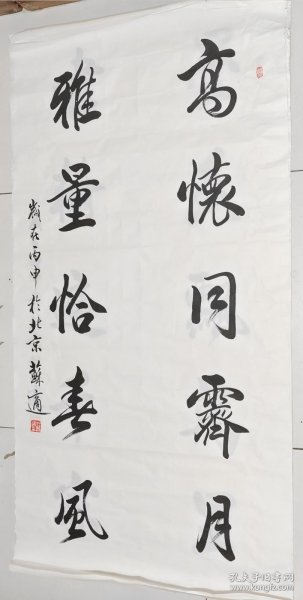 高懷同霽月
雅量恰春風
歲在丙申於北京蘇適
孔夫子旧书网